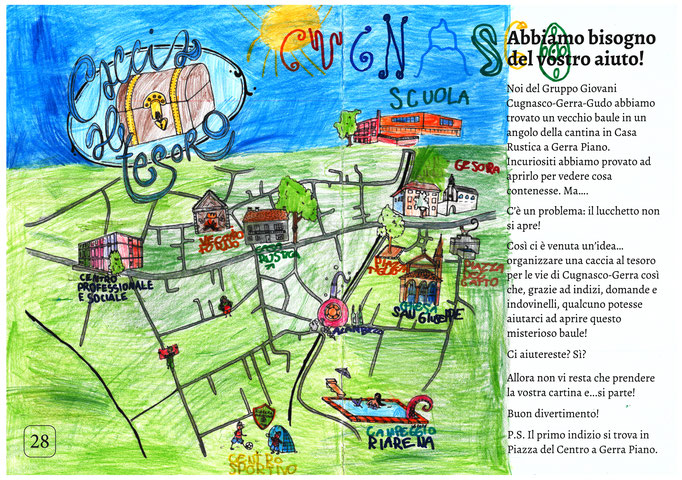 Caccia
al
tesoro
CUGNASCO
SCUOLA
GESORA
CENTRO
PROFESSIONALE
E SOCIALE
VECCHIO
RUSTICA
PIAZZA
GATTO
CHIESA
SAN GIUSEPPE
CAMPEGGIO
RIARENA
CENTRO
SPORTIVO
28
Abbiamo bisogno
del vostro aiuto!
Noi del Gruppo Giovani
Cugnasco-Gerra-Gudo abbiamo
trovato un vecchio baule in un
angolo della cantina in Casa
Rustica a Gerra Piano.
Incuriositi abbiamo provato ad
aprirlo per vedere cosa
contenesse. Ma....
C'è un problema: il lucchetto non
si apre!
Così ci è venuta un'idea...
organizzare una caccia al tesoro
per le vie di Cugnasco-Gerra così
che, grazie ad indizi, domande e
indovinelli, qualcuno potesse
aiutarci ad aprire questo
misterioso baule!
Ci aiutereste? Sì?
Allora non vi resta che prendere
la vostra cartina e...si parte!
Buon divertimento!
P.S. Il primo indizio si trova in
Piazza del Centro a Gerra Piano.